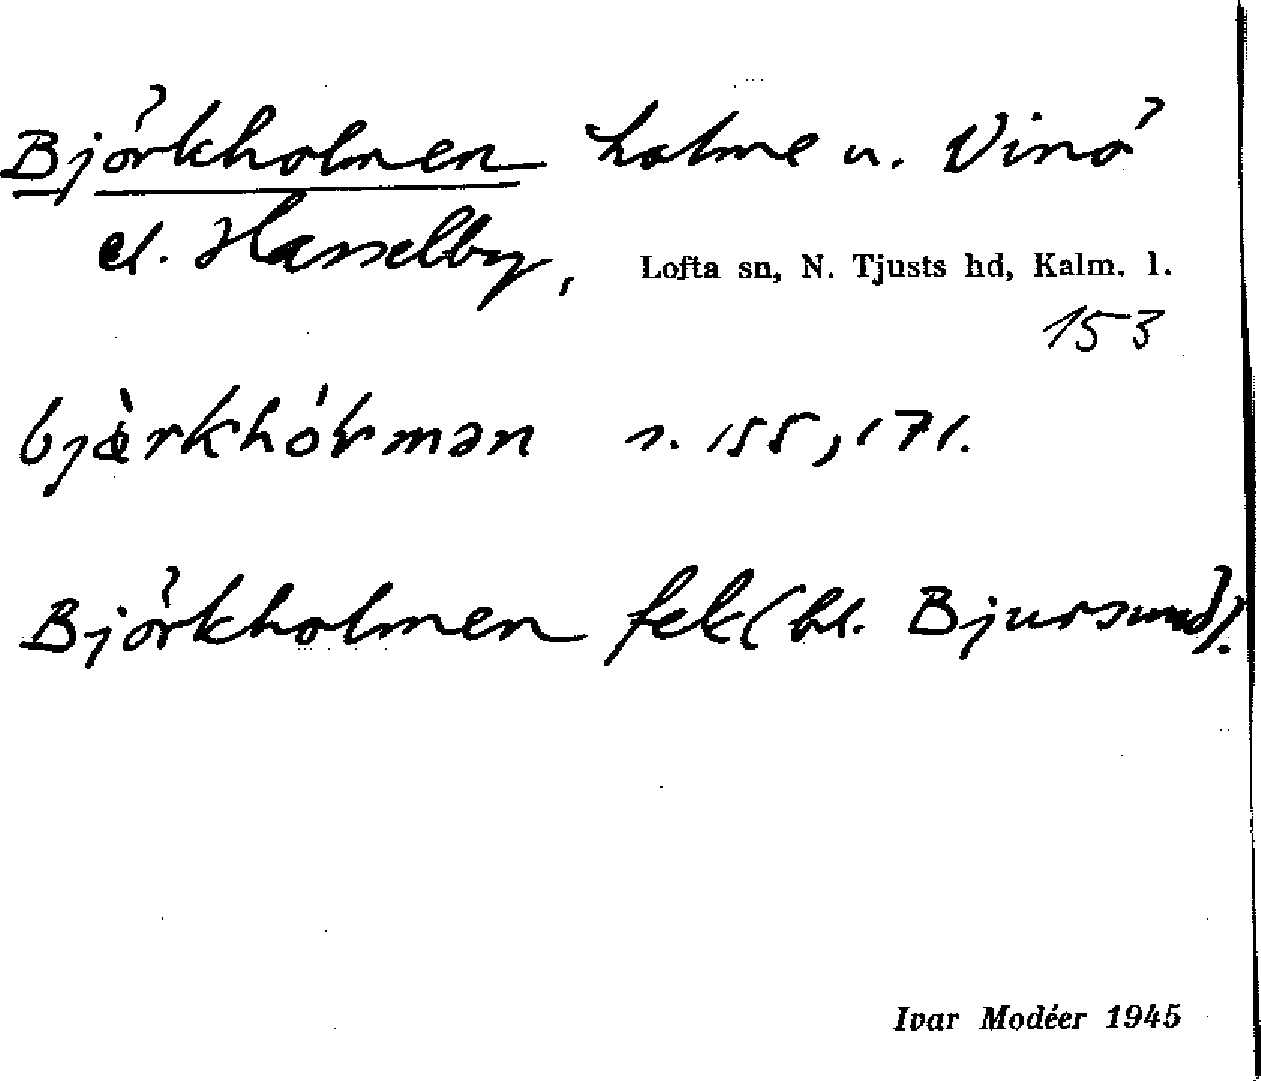 Björkholmen holme u. Vinö
el. Hasselby, Lofta sn, N. Tjusts hd, Kalm. l.
153
s. 155, 171.
Björkholmen fek (bl. Bjursund).
Ivar Modéer 1945